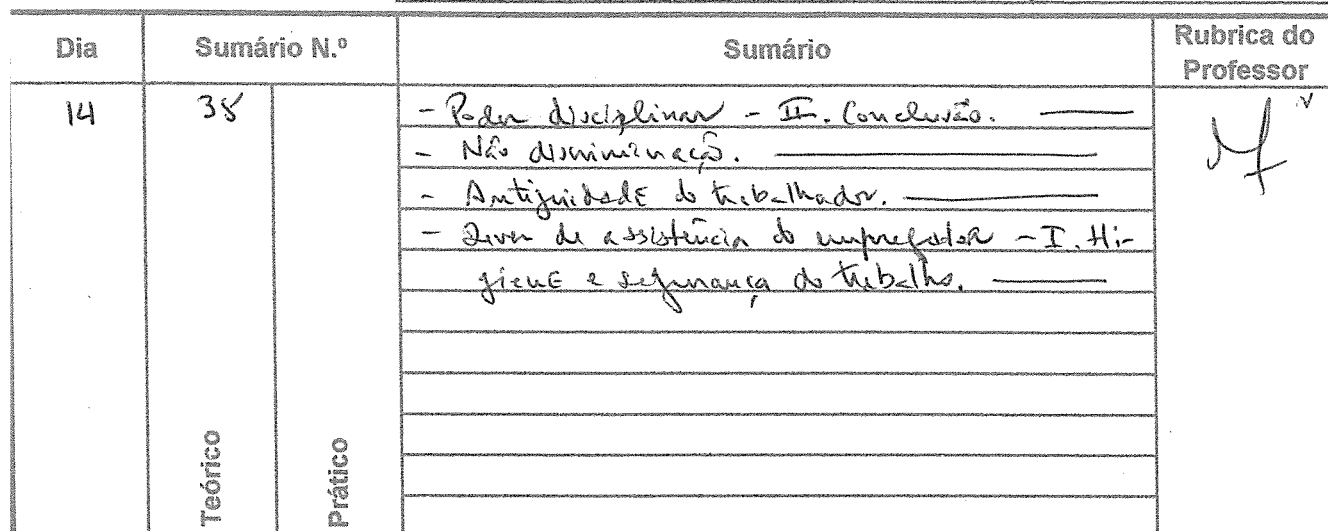 Dia Sumário N.º Sumário Rubrica do Professor
14 38 - Poder disciplinar - II. Conclusão.
- Não discriminação.
- Antiguidade do trabalhador.
- Dever de assistência do empregador - I. Hi-
giene e segurança do trabalho.
Teórico Prático